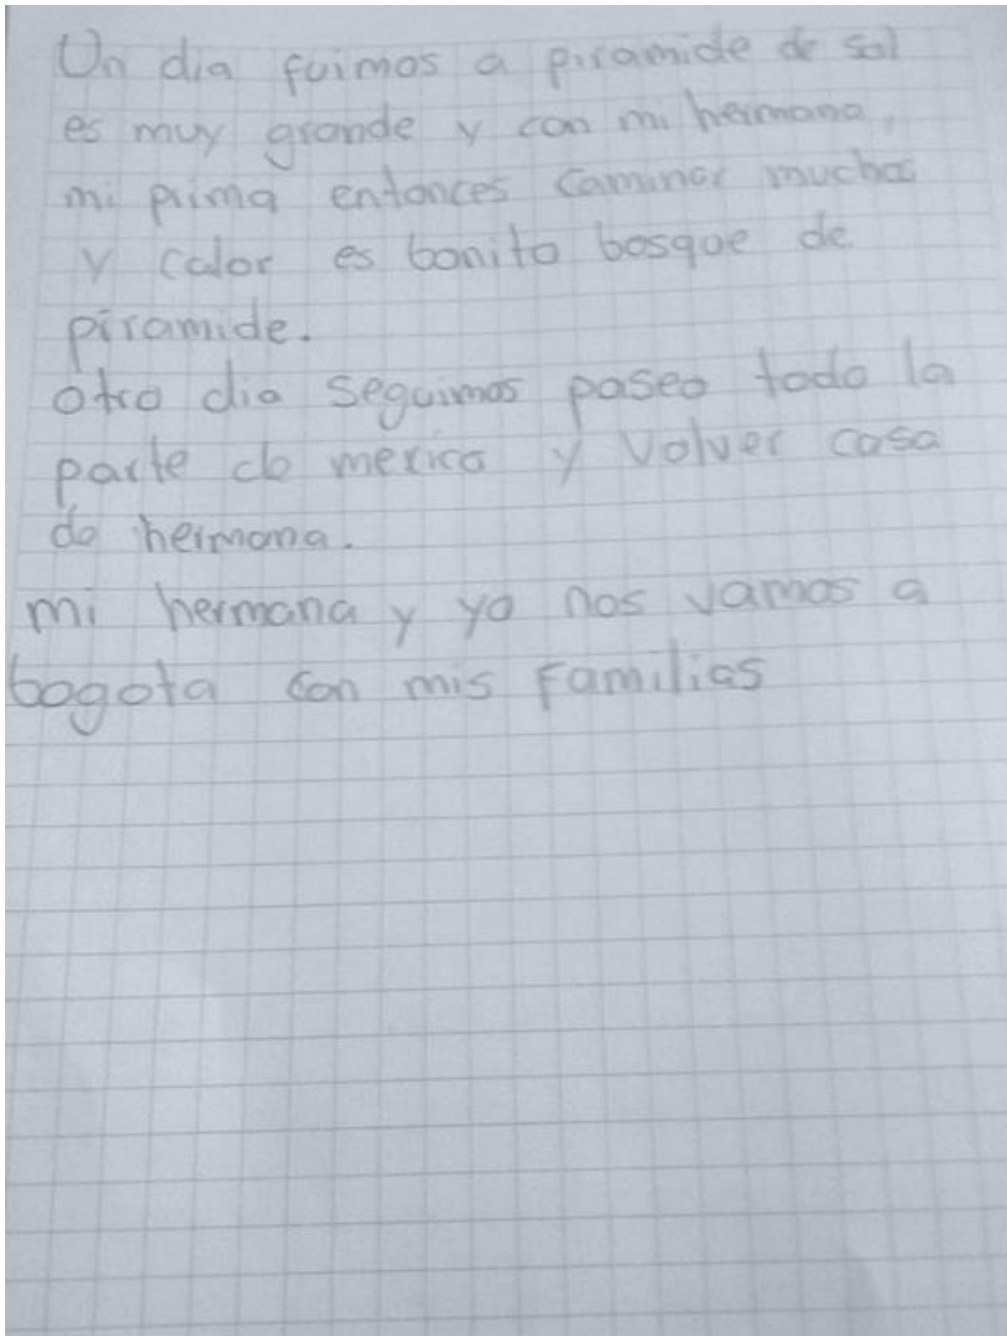 Un dia fuimos a piramide de sol
es muy grande y con mi hermana,
mi prima entonces caminar muchas
y calor es bonito bosque de
piramide.
otro dia seguimos paseo todo la
parte de mexico y volver casa
de hermana.
mi hermana y yo nos vamos a
bogota con mis familias